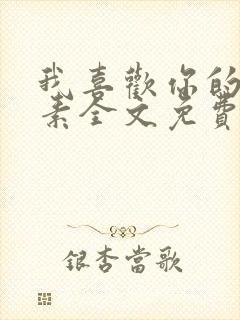 我喜歡你的
素全文免費
銀杏當歌